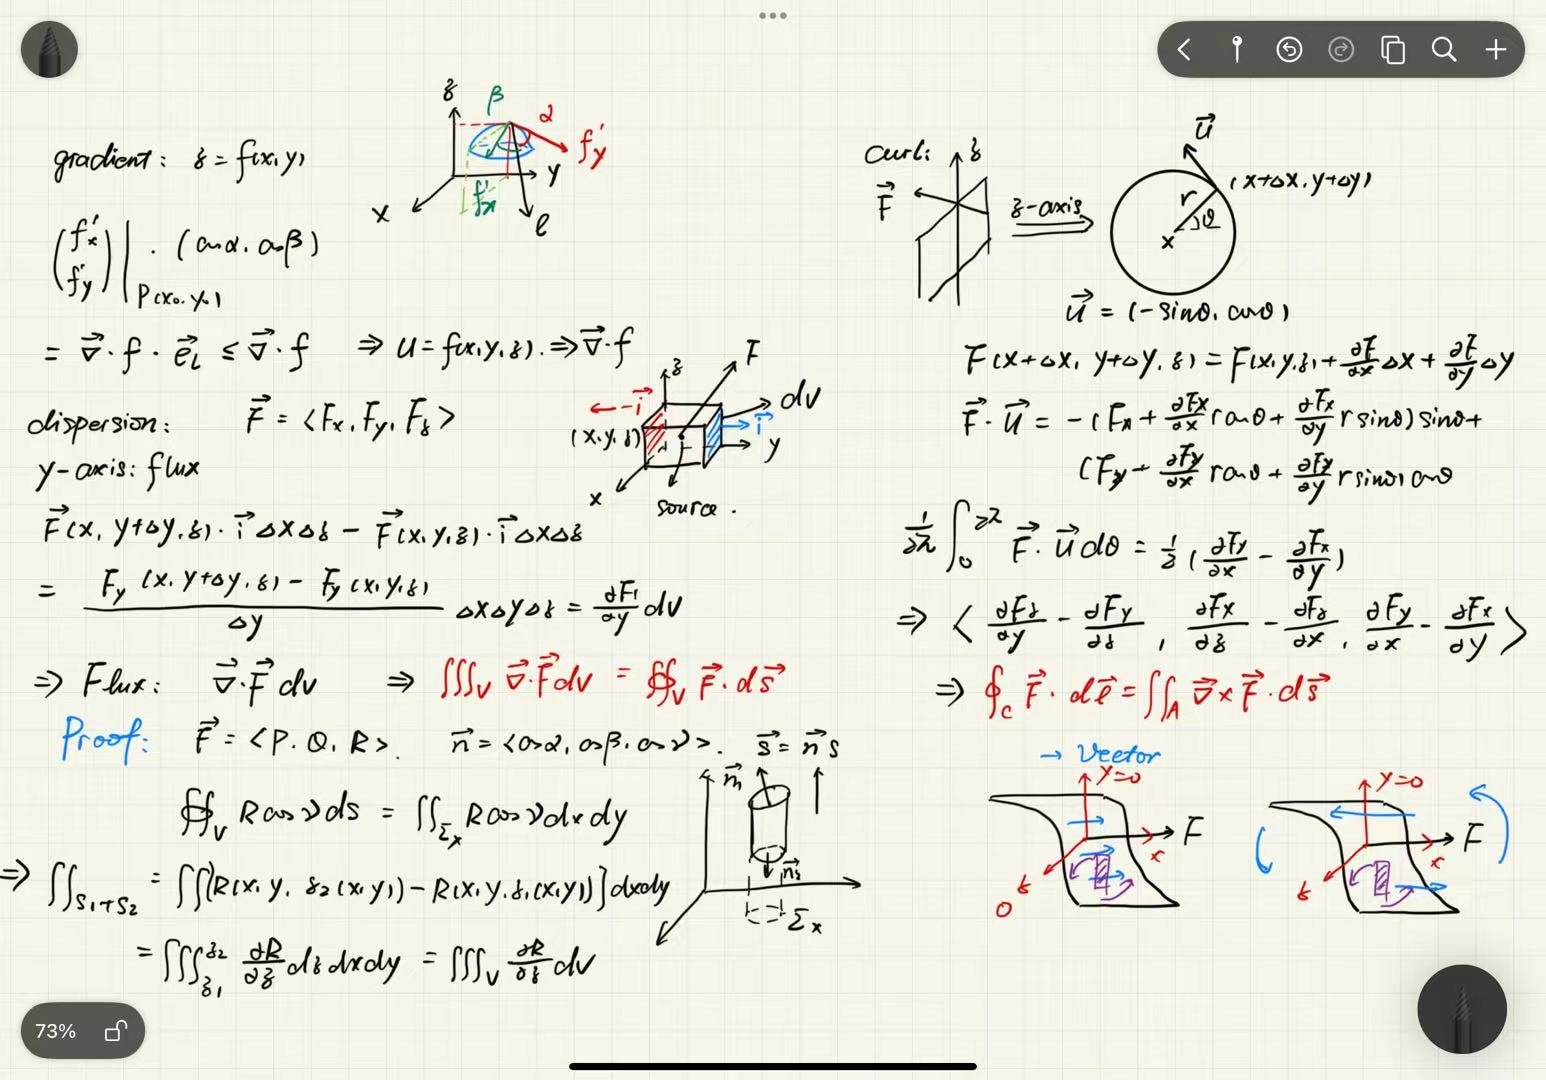 gradient: z = f(x, y)
z
β
α
f'y
y
f'x
x
l
(f'x
f'y) | P(x₀, y₀) · (cosα, cosβ)
= ∇⃗·f · e⃗l ≤ ∇⃗·f ⇒ u = f(x, y, z). ⇒ ∇⃗·f
dispersion: F⃗ = <Fx, Fy, Fz>
y-axis: flux
z
F
dv
-i⃗
i⃗
(x, y, z)
y
x
source.
F⃗(x, y+Δy, z)·i⃗ ΔxΔz - F⃗(x, y, z)·i⃗ ΔxΔz
= (Fy(x, y+Δy, z) - Fy(x, y, z))/Δy ΔxΔyΔz = ∂F₁/∂y dv
⇒ Flux: ∇⃗·F⃗ dv ⇒ ∭V ∇⃗·F⃗ dv = ∯V F⃗·ds⃗
Proof: F⃗ = <P, Q, R>. n⃗ = <cosα, cosβ, cosγ>. s⃗ = n⃗ s
∯V R cosγ ds = ∬Σx R cosγ dxdy
⇒ ∬S₁+S₂ = ∬[R(x, y, z₂(x, y)) - R(x, y, z₁(x, y))] dxdy
= ∭z₁^z₂ ∂R/∂z dz dxdy = ∭V ∂R/∂z dv
Σx
curl:
z
F⃗
z-axis
u⃗
(x+Δx, y+Δy)
r
θ
x
u⃗ = (-sinθ, cosθ)
F(x+Δx, y+Δy, z) = F(x, y, z) + ∂F/∂x Δx + ∂F/∂y Δy
F⃗·u⃗ = -(Fx + ∂Fx/∂x r cosθ + ∂Fx/∂y r sinθ) sinθ +
(Fy + ∂Fy/∂x r cosθ + ∂Fy/∂y r sinθ) cosθ
1/2π ∫₀^2π F⃗·u⃗ dθ = 1/2 (∂Fy/∂x - ∂Fx/∂y)
⇒ < ∂Fz/∂y - ∂Fy/∂z, ∂Fx/∂z - ∂Fz/∂x, ∂Fy/∂x - ∂Fx/∂y >
⇒ ∮C F⃗·dl⃗ = ∬A ∇⃗×F⃗·ds⃗
→ Vector
y=0
F
x
z
0
y=0
F
x
z
73%